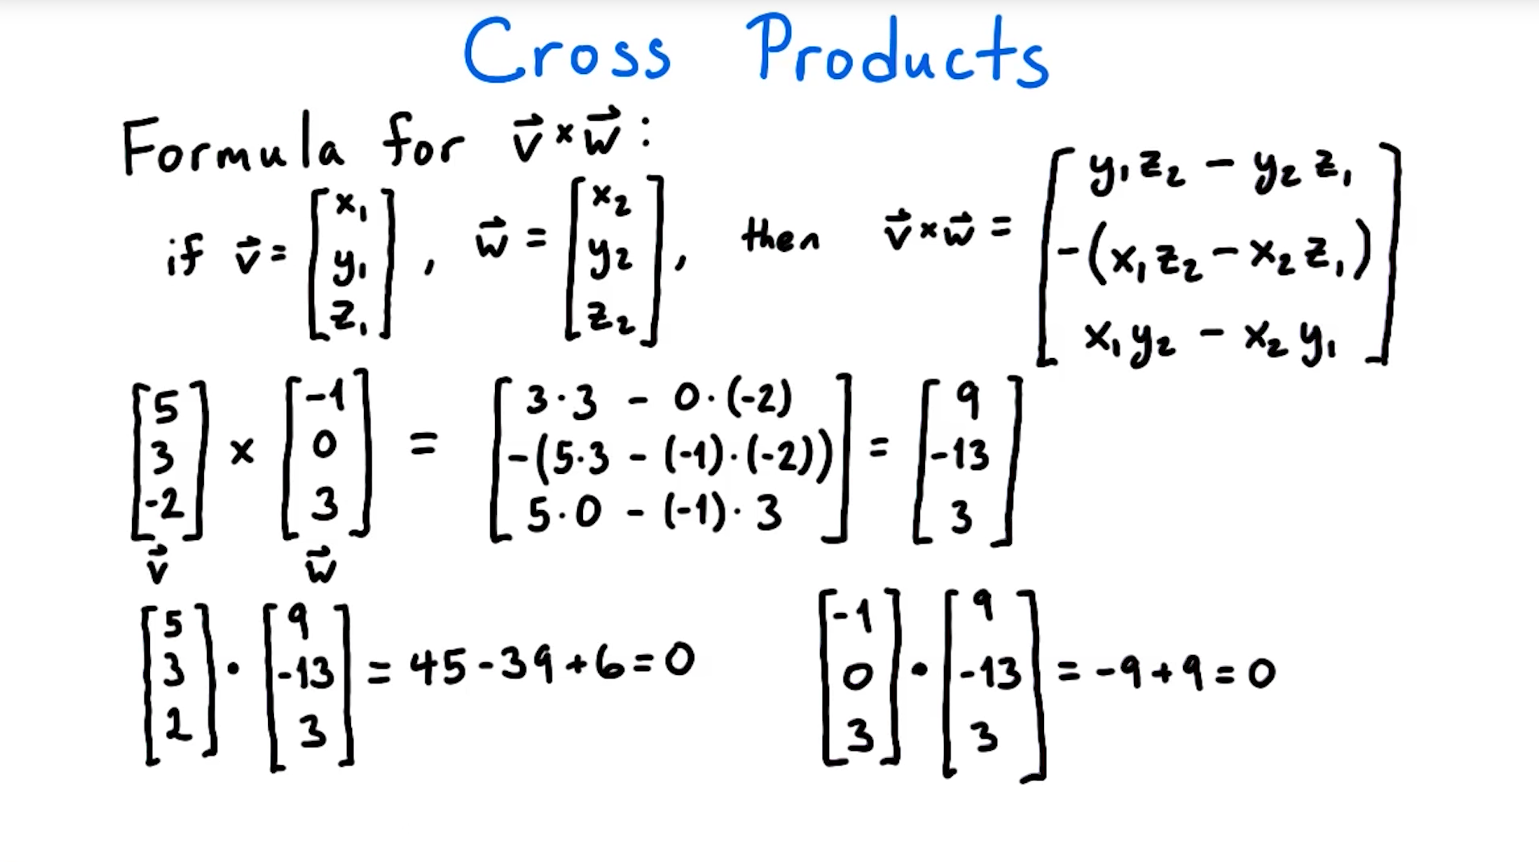 Cross Products
Formula for v⃗ × w⃗ :
if v⃗ = [x₁ y₁ z₁], w⃗ = [x₂ y₂ z₂], then v⃗ × w⃗ = [y₁z₂ − y₂z₁ −(x₁z₂ − x₂z₁) x₁y₂ − x₂y₁]
[5 3 -2] × [-1 0 3] = [3·3 − 0·(-2) −(5·3 − (-1)·(-2)) 5·0 − (-1)·3] = [9 -13 3]
v⃗ w⃗
[5 3 2] · [9 -13 3] = 45 - 39 + 6 = 0
[-1 0 3] · [9 -13 3] = -9 + 9 = 0